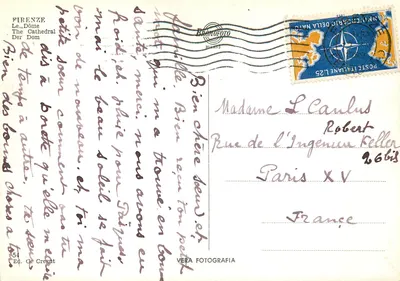 FIRENZE
Le Dôme
The Cathedral
Der Dom
Bien chère sœur, et
famille. Bien reçu ton petit
mot qui m'a trouvé en bonne
santé, merci. nous avons eu
froid et pluie pour Pâques
mais le beau soleil se fait
voir de nouveau. et toi ma
petite sœur comment vas-tu
dis à qu'elle m'écrive
de temps à autre. ta sœur
Bien des bonnes choses à tous
POSTE ITALIANE L.25
ANNIVERSARIO DELLA NATO
Madame L Caulus
Robert
Rue de l'Ingenieur Keller
26 bis
Paris XV
France
VERA FOTOGRAFIA